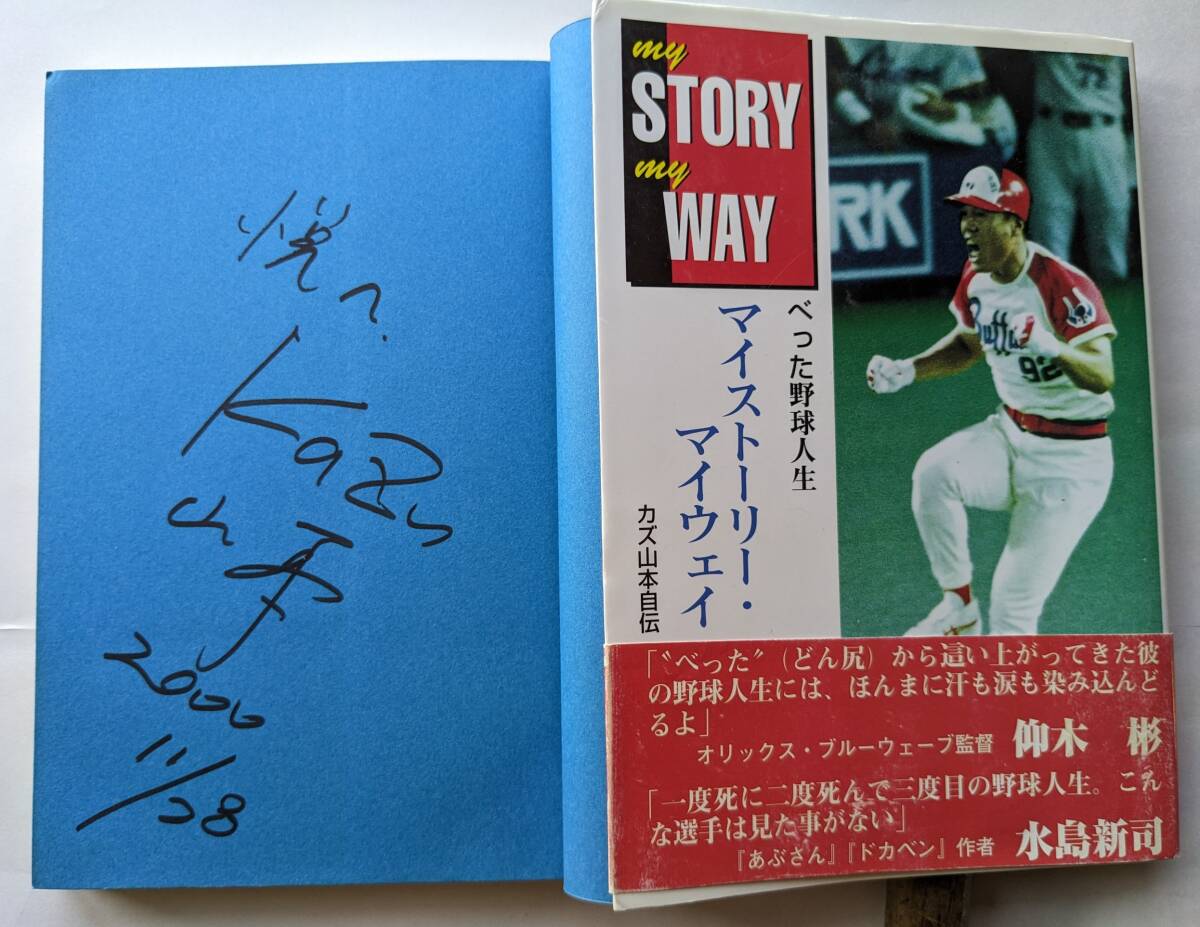 悦へ
Kazu
山本
2000
11/28
my
STORY
my
WAY
べった野球人生
マイストーリー・
マイウェイ
カズ山本自伝
RK
72
Buffa
92
「〝べった〟（どん尻）から這い上がってきた彼
の野球人生には、ほんまに汗も涙も染み込んど
るよ」
オリックス・ブルーウェーブ監督 仰木 彬
「一度死に二度死んで三度目の野球人生。こん
な選手は見た事がない」
『あぶさん』『ドカベン』作者 水島新司